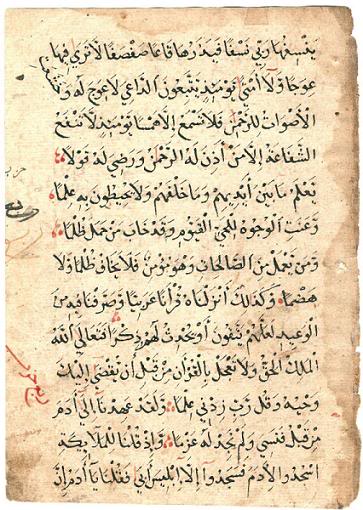 ينسفها ربي نسفا فيذرها قاعا صفصفا لا ترى فيها
عوجا ولا أمتا يومئذ يتبعون الداعي لا عوج له وخشعت
الأصوات للرحمن فلا تسمع إلا همسا يومئذ لا تنفع
الشفاعة إلا من أذن له الرحمن ورضي له قولا
يعلم ما بين أيديهم وما خلفهم ولا يحيطون به علما
وعنت الوجوه للحي القيوم وقد خاب من حمل ظلما
ومن يعمل من الصالحات وهو مؤمن فلا يخاف ظلما ولا
هضما وكذلك أنزلناه قرآنا عربيا وصرفنا فيه من
الوعيد لعلهم يتقون أو يحدث لهم ذكرا فتعالى الله
الملك الحق ولا تعجل بالقرآن من قبل أن يقضى إليك
وحيه وقل رب زدني علما ولقد عهدنا إلى آدم
من قبل فنسي ولم نجد له عزما وإذ قلنا للملائكة
اسجدوا لآدم فسجدوا إلا إبليس أبى فقلنا يا آدم إن